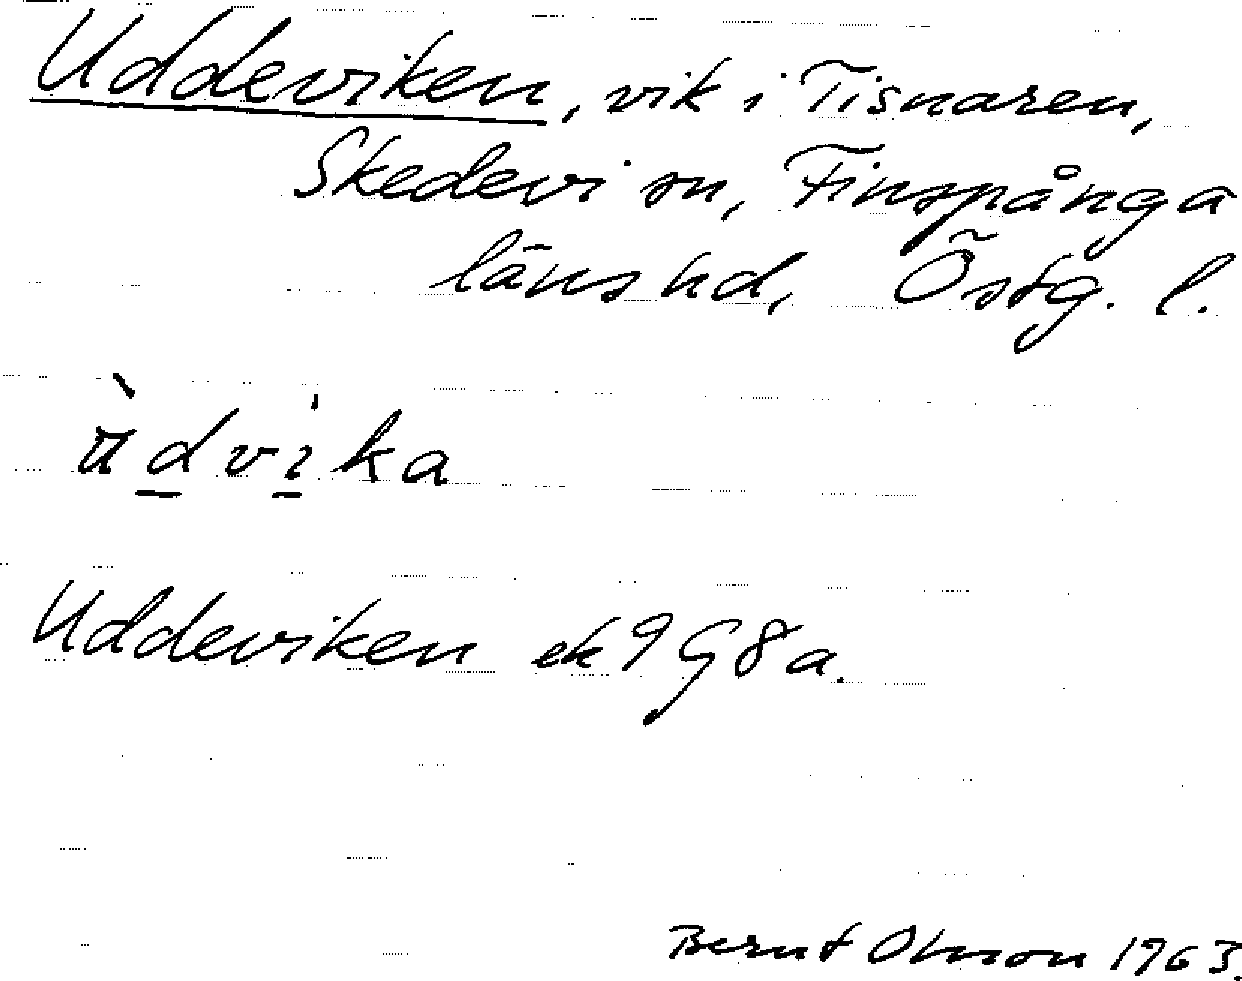 Uddeviken, vik i Tisnaren,
Skedevi sn, Finspånga
läns hd, Östg. l.
ùdvika
Uddeviken ek 9 G 8 a.
Bernt Olsson 1963.